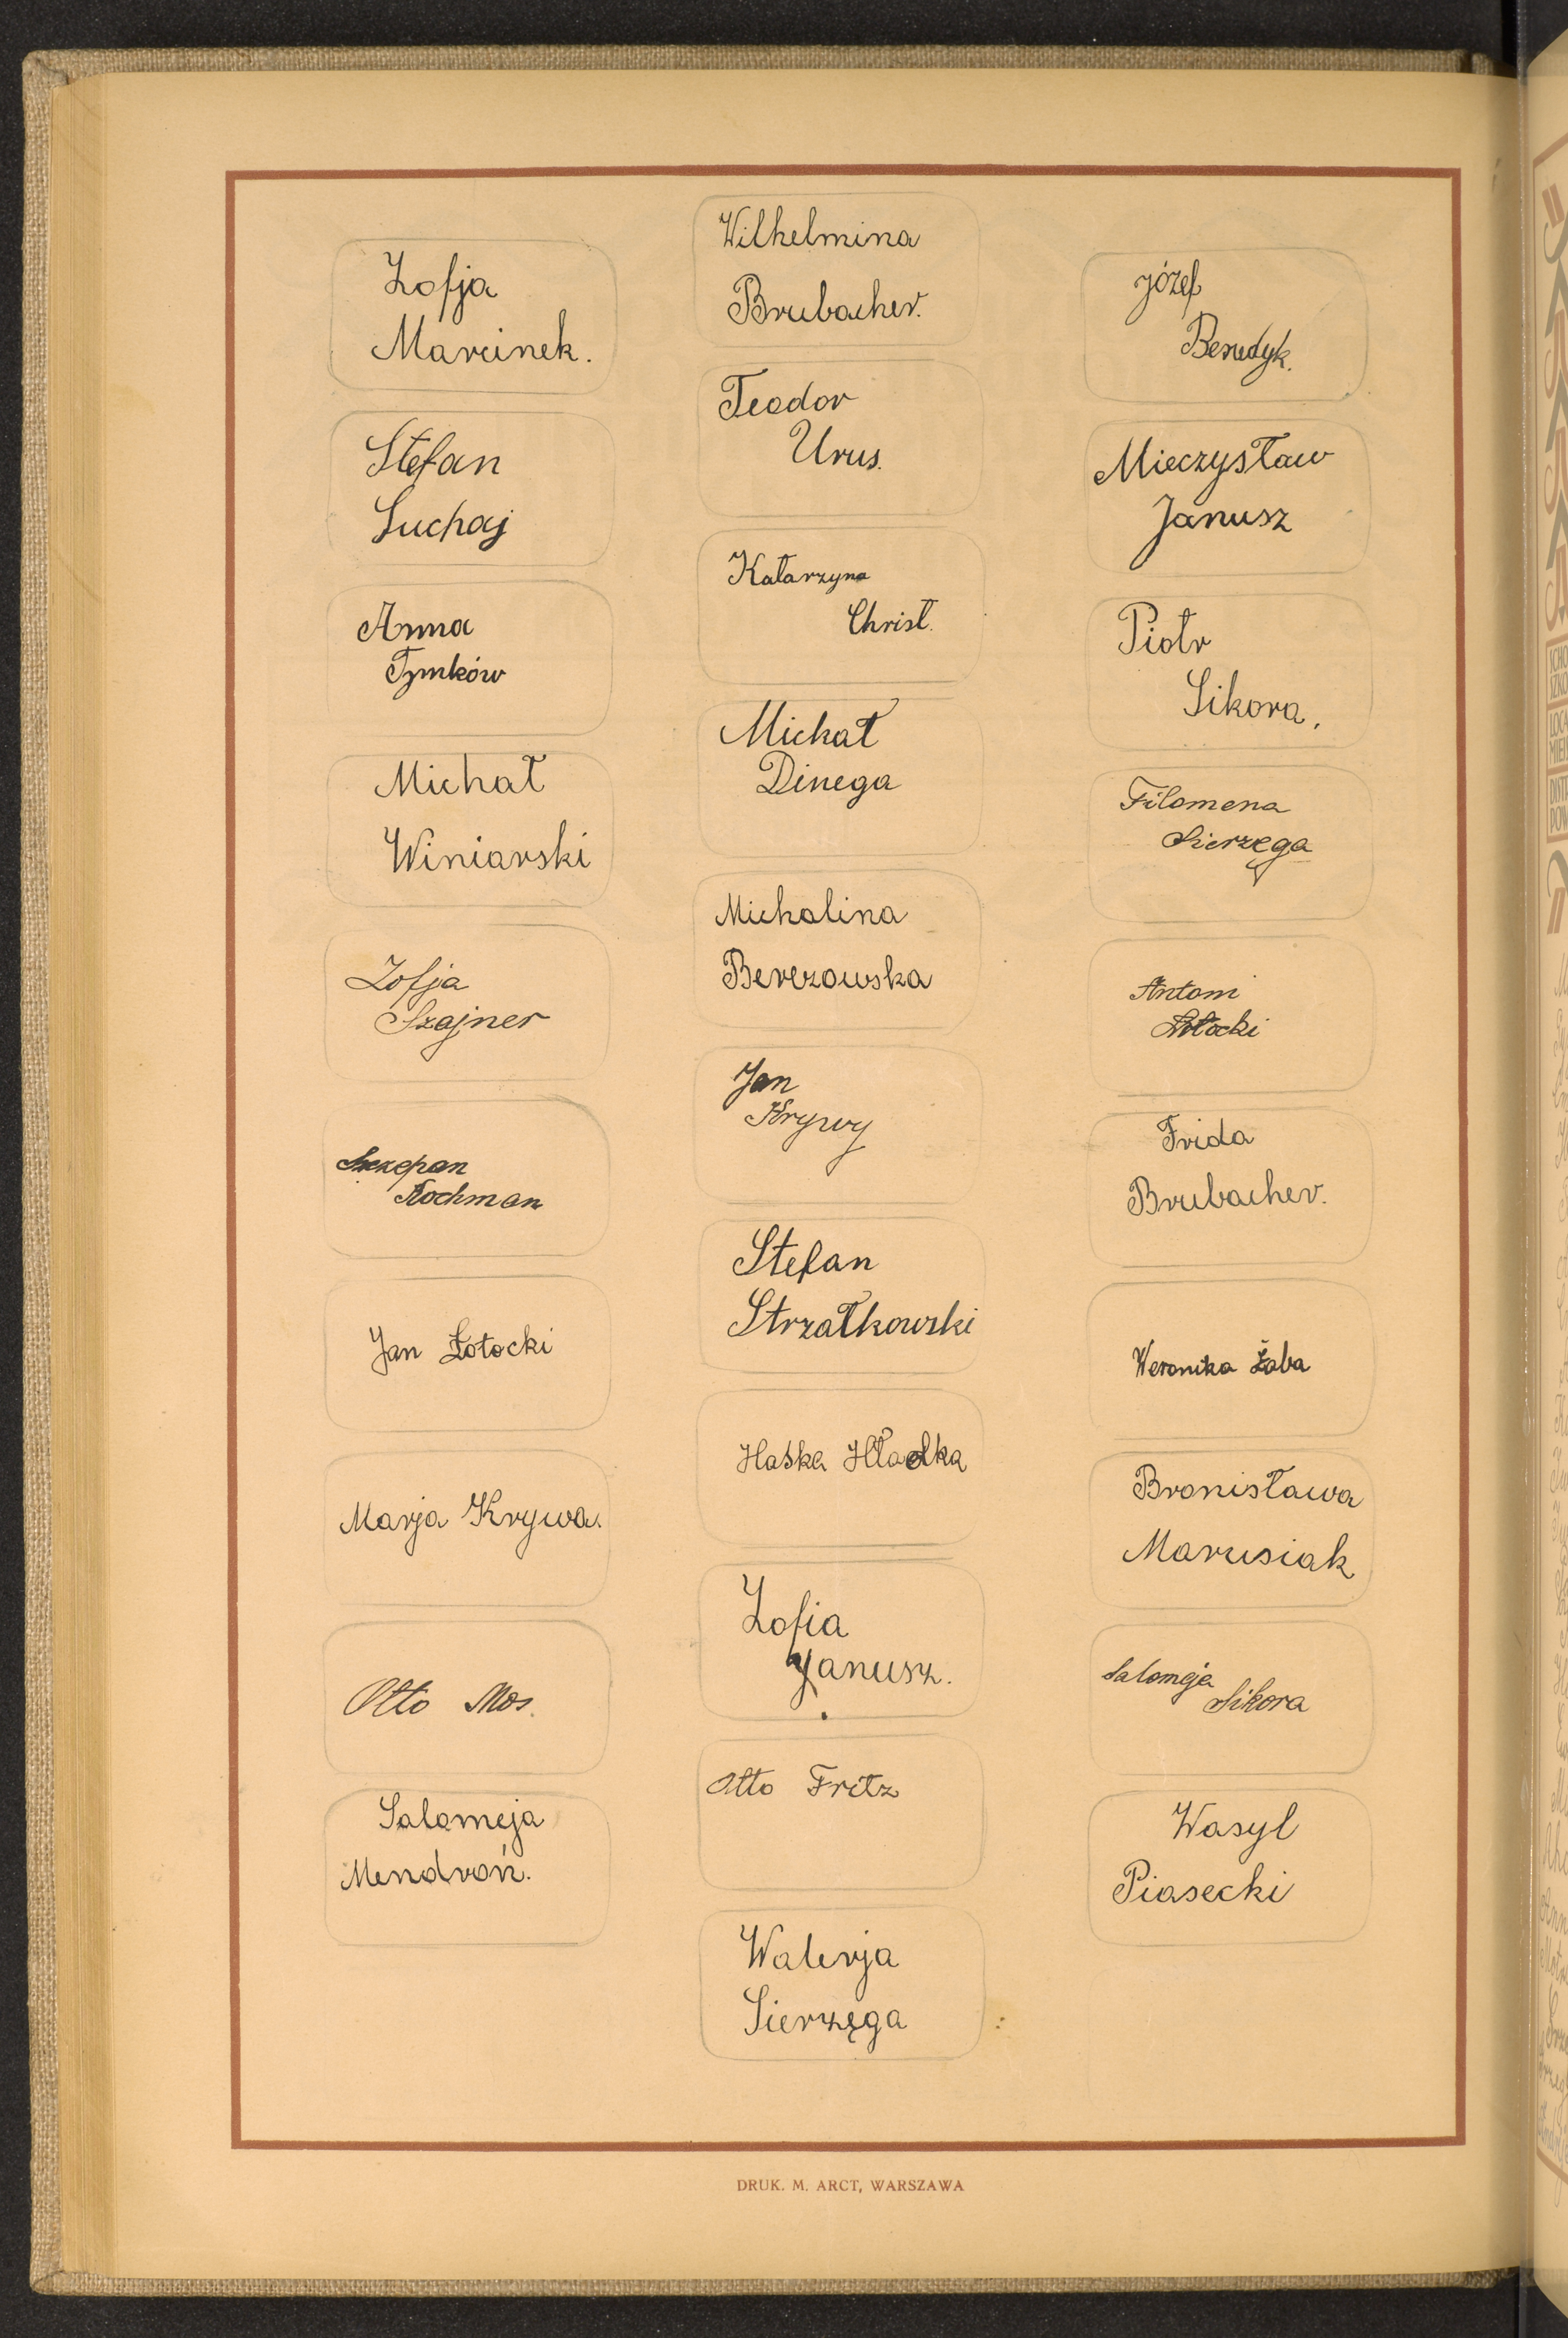 Zofja
Marcinek.
Stefan
Suchaj
Anna
Tymków
Michał
Winiarski
Zofja
Szajner
Szczepan
Kochman
Jan Łotocki
Marja Krywa.
Otto Mos.
Salomeja
Mendroń.
Wilhelmina
Brubacher.
Teodor
Urus.
Katarzyna
Christ.
Michał
Dinega
Michalina
Berezowska
Jan
Krywy
Stefan
Strzałkowski
Haśka Hładka
Zofia
Janusz.
Otto Fritz
Walerja
Sierzęga
Józef
Benedyk.
Mieczysław
Janusz
Piotr
Sikora.
Filomena
Sierzęga
Antoni
Frida
Brubacher.
Weronika Żaba
Bronisława
Marusiak
Salomeja
Sikora
Wasyl
Piasecki
DRUK. M. ARCT, WARSZAWA